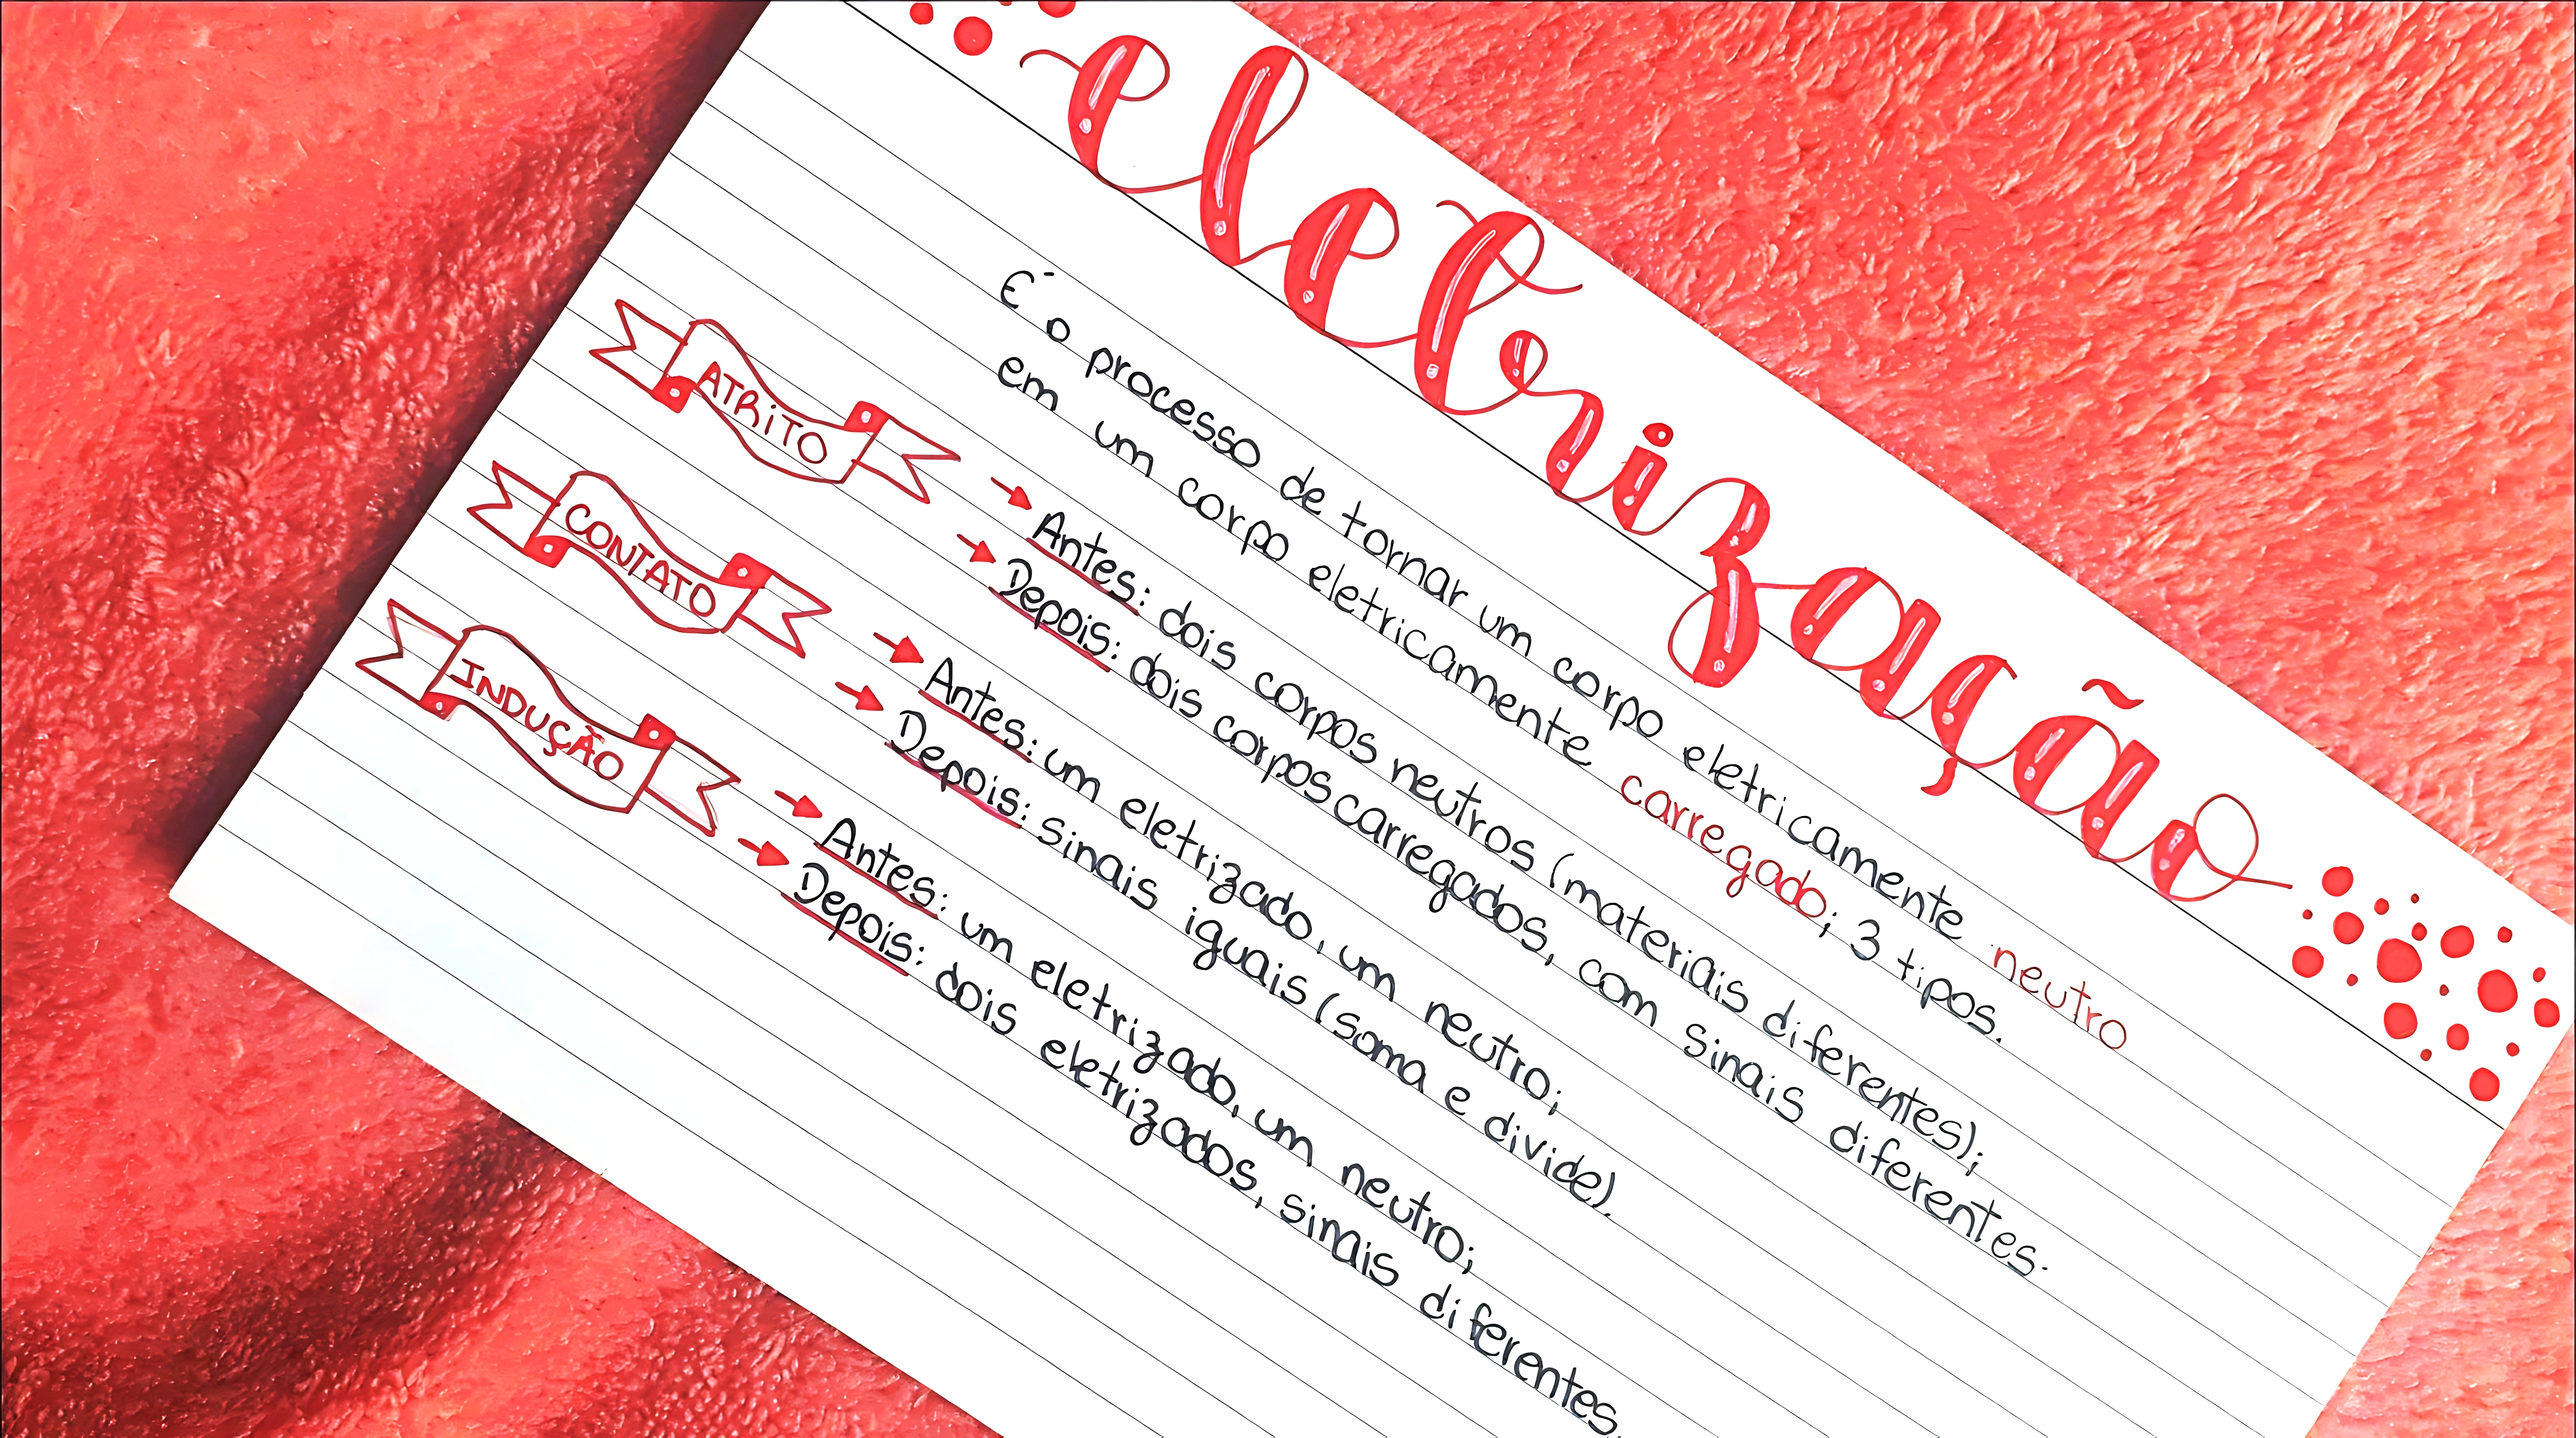 eletrização
É o processo de tornar um corpo eletricamente neutro
em um corpo eletricamente carregado; 3 tipos.
ATRITO
→ Antes: dois corpos neutros (materiais diferentes);
→ Depois: dois corpos carregados, com sinais diferentes.
CONTATO
→ Antes: um eletrizado, um neutro;
→ Depois: sinais iguais (soma e divide).
INDUÇÃO
→ Antes: um eletrizado, um neutro;
→ Depois: dois eletrizados, sinais diferentes.